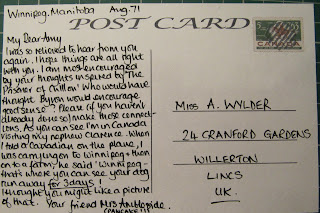 Winnipeg, Manitoba Aug. 71
POST CARD
My Dear Amy
I was so relieved to hear from you
again. I hope things are all right
with you. I am most encouraged
by your thoughts inspired by 'The
Prisoner of Chillon' Who would have
thought Byron would encourage
good sense? Please (if you haven't
already done so) make those connect-
ions. As you can see I'm in Canada
visiting my nephew Clarence. When
I told a Canadian on the plane, I
was coming on to Winnipeg & then
on to a farm, he said 'Winnipeg -
that's where you can see your dog
run away for 3 days!'
I thought you might like a picture
of that. Your friend Mrs
(PANCAKE!!)
CANADA
MISS A. WYLDER
24 CRANFORD GARDENS
WILLERTON
LINCS
U.K.